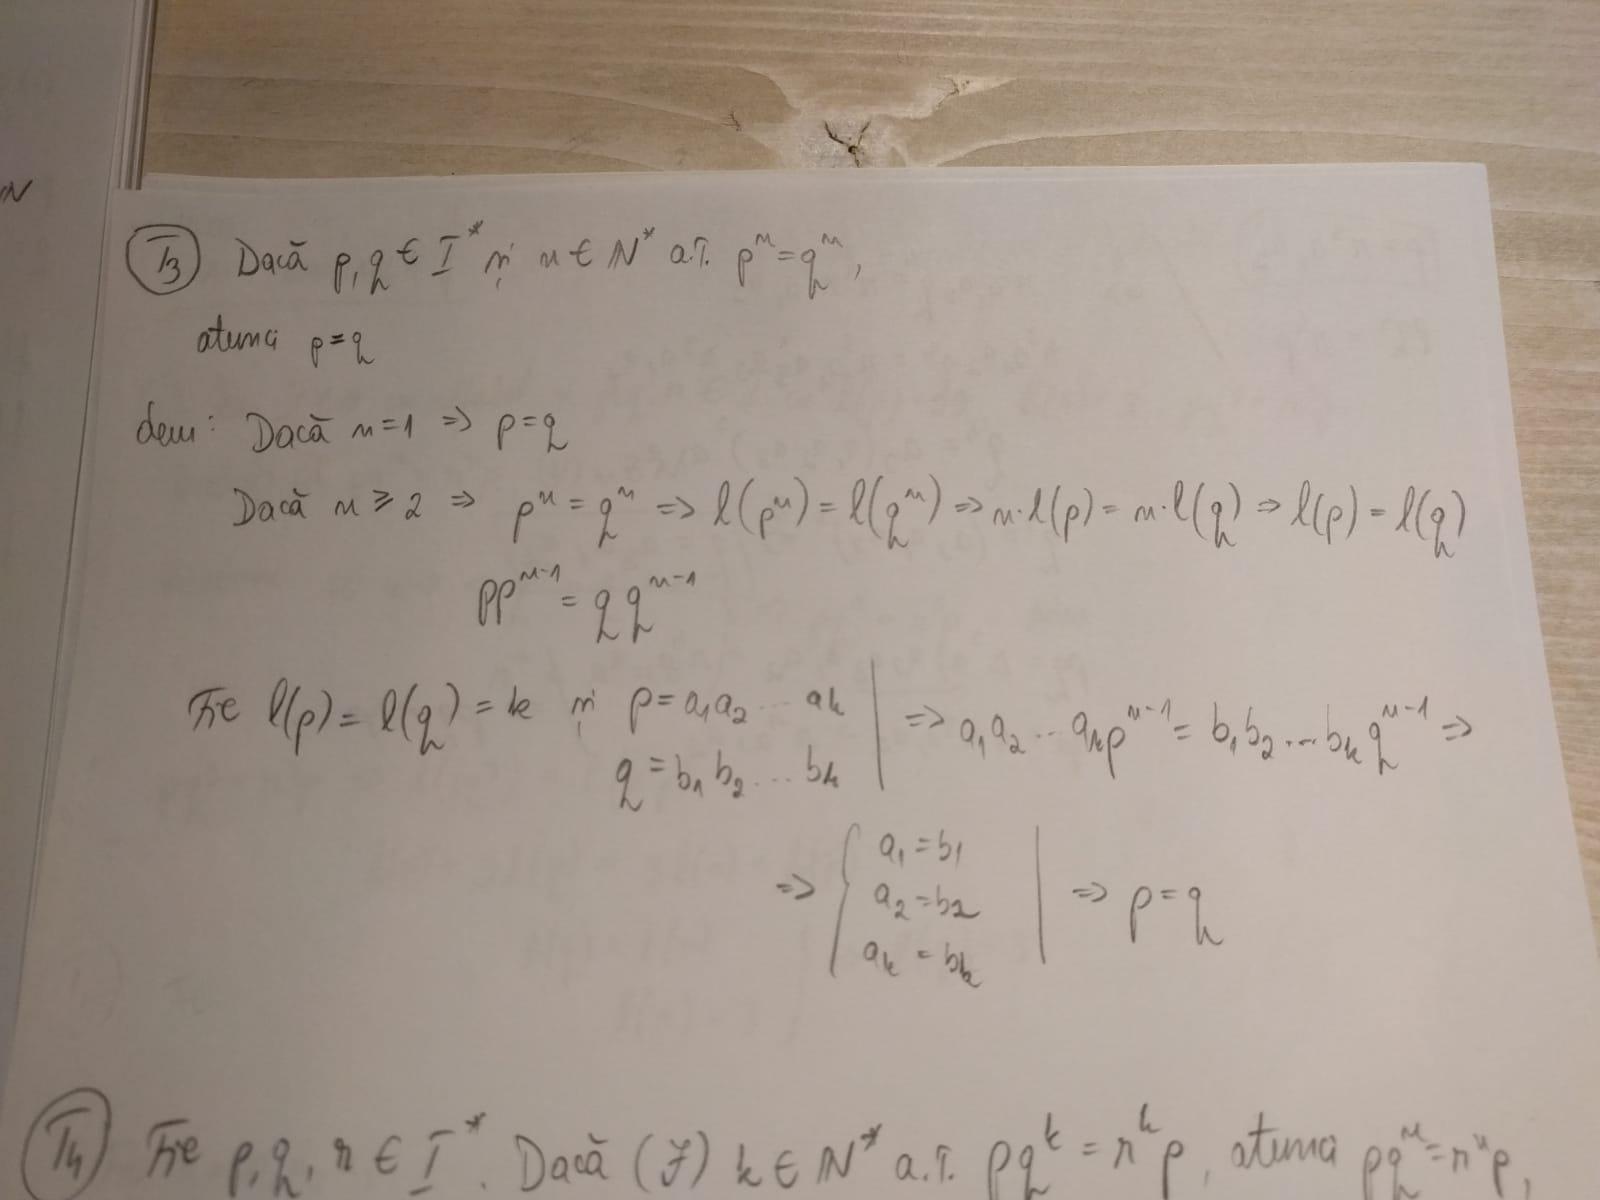 N
T3 Dacă p, q ∈ I* și n ∈ N* a.î. pⁿ = qⁿ,
atunci p = q
dem: Dacă n = 1 => p = q
Dacă n ≥ 2 => pⁿ = qⁿ => l(pⁿ) = l(qⁿ) => n·l(p) = n·l(q) => l(p) = l(q)
ppⁿ⁻¹ = qqⁿ⁻¹
Fie l(p) = l(q) = k și p = a₁a₂ ... aₖ | => a₁a₂ ... aₖpⁿ⁻¹ = b₁b₂ ... bₖqⁿ⁻¹ =>
q = b₁b₂ ... bₖ
=> { a₁ = b₁
a₂ = b₂ | => p = q
aₖ = bₖ
T4 Fie p, q, r ∈ I*. Dacă (∃) k ∈ N* a.î. pqᵏ = rᵏp, atunci pqⁿ = rⁿp,